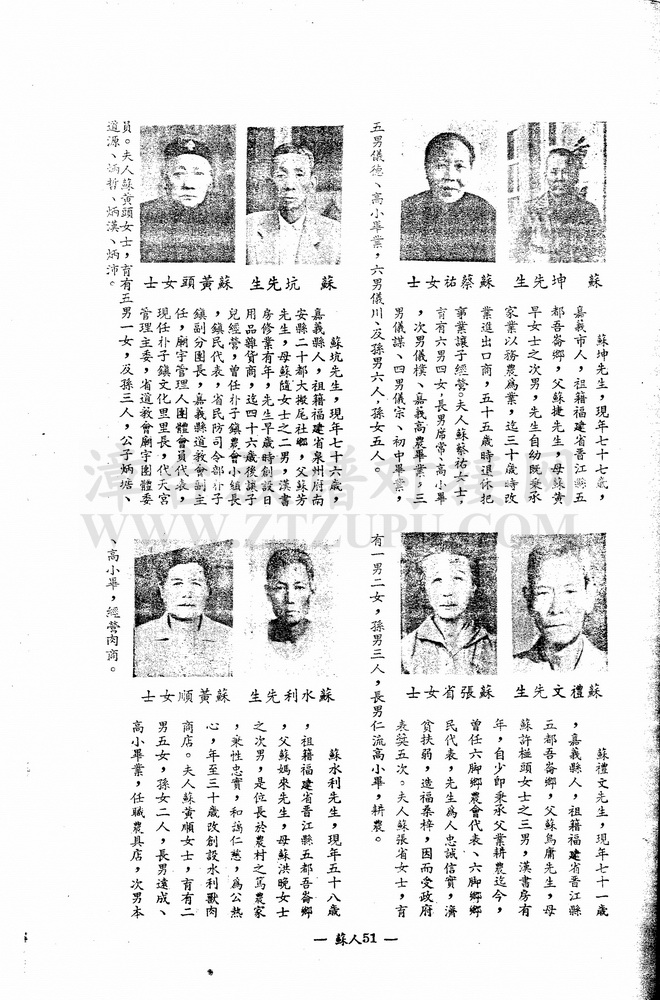 蘇　坤先生　蘇蔡祐女士
蘇坤先生，現年七十七歲，
嘉義市人，祖籍福建省晋江縣五
都吾崙鄉，父蘇捷先生，母蘇黃
早女士之次男，先生自幼既秉承
家業以務農爲業，迄三十歲時改
業進出口商，五十五歲時退休把
事業讓子經營。夫人蘇蔡祐女士，
育有六男四女，長男席常、高小畢
，次男儀樸、嘉義高農畢業，三
男儀謀、四男儀宗、初中畢業，
五男儀德、高小畢業，六男儀川、及孫男六人，孫女五人。
蘇　坑先生　蘇黃頭女士
蘇坑先生，現年七十六歲，
嘉義縣人，祖籍福建省泉州府南
安縣二十都大搬尾社鄉，父蘇芳
先生，母蘇隨女士之二男，漢書
房修業有年，先生早歲時創設日
用品雜貨商，迄四十六歲後讓子
兒經營，曾任朴子鎮農會小組長
，鎮民代表，省民防司令部朴子
鎮副分團長，嘉義縣道教會副主
任，廟宇管理人團體會員代表，
現任朴子鎮文化里里長，代天宮
管理主委，省道教會廟宇團體委
員。夫人蘇黃頭女士，育有五男一女，及孫三人，公子炳塘、
道源、炳哲、炳漢、炳沛。
蘇禮文先生　蘇張省女士
蘇禮文先生，現年七十一歲
，嘉義縣人，祖籍福建省晋江縣
五都吾崙鄉，父蘇烏庸先生，母
蘇許極頭女士之三男，漢書房有
年，自少即秉承父業耕農迄今，
曾任六腳鄉農會代表、六腳鄉鄉
民代表，先生爲人忠誠信實，濟
貧扶弱，造福桑梓，因而受政府
表獎五次。夫人蘇張省女士，育
有一男二女，孫男三人，長男仁流高小畢，耕農。
蘇水利先生　蘇黃順女士
蘇水利先生，現年五十八歲
，祖籍福建省晋江縣五都吾崙鄉
，父蘇媽來先生，母蘇洪晚女士
之次男，是位長於農村之篤農家
，秉性忠實，和謁仁慈，爲公熱
心，年至三十歲改創設水利獸肉
商店。夫人蘇黃順女士，育有二
男五女，孫女二人，長男遠成、
高小畢業，任職農具店，次男本
、高小畢，經營肉商。
— 蘇人51 —
WWW.ZTZUPU.COM